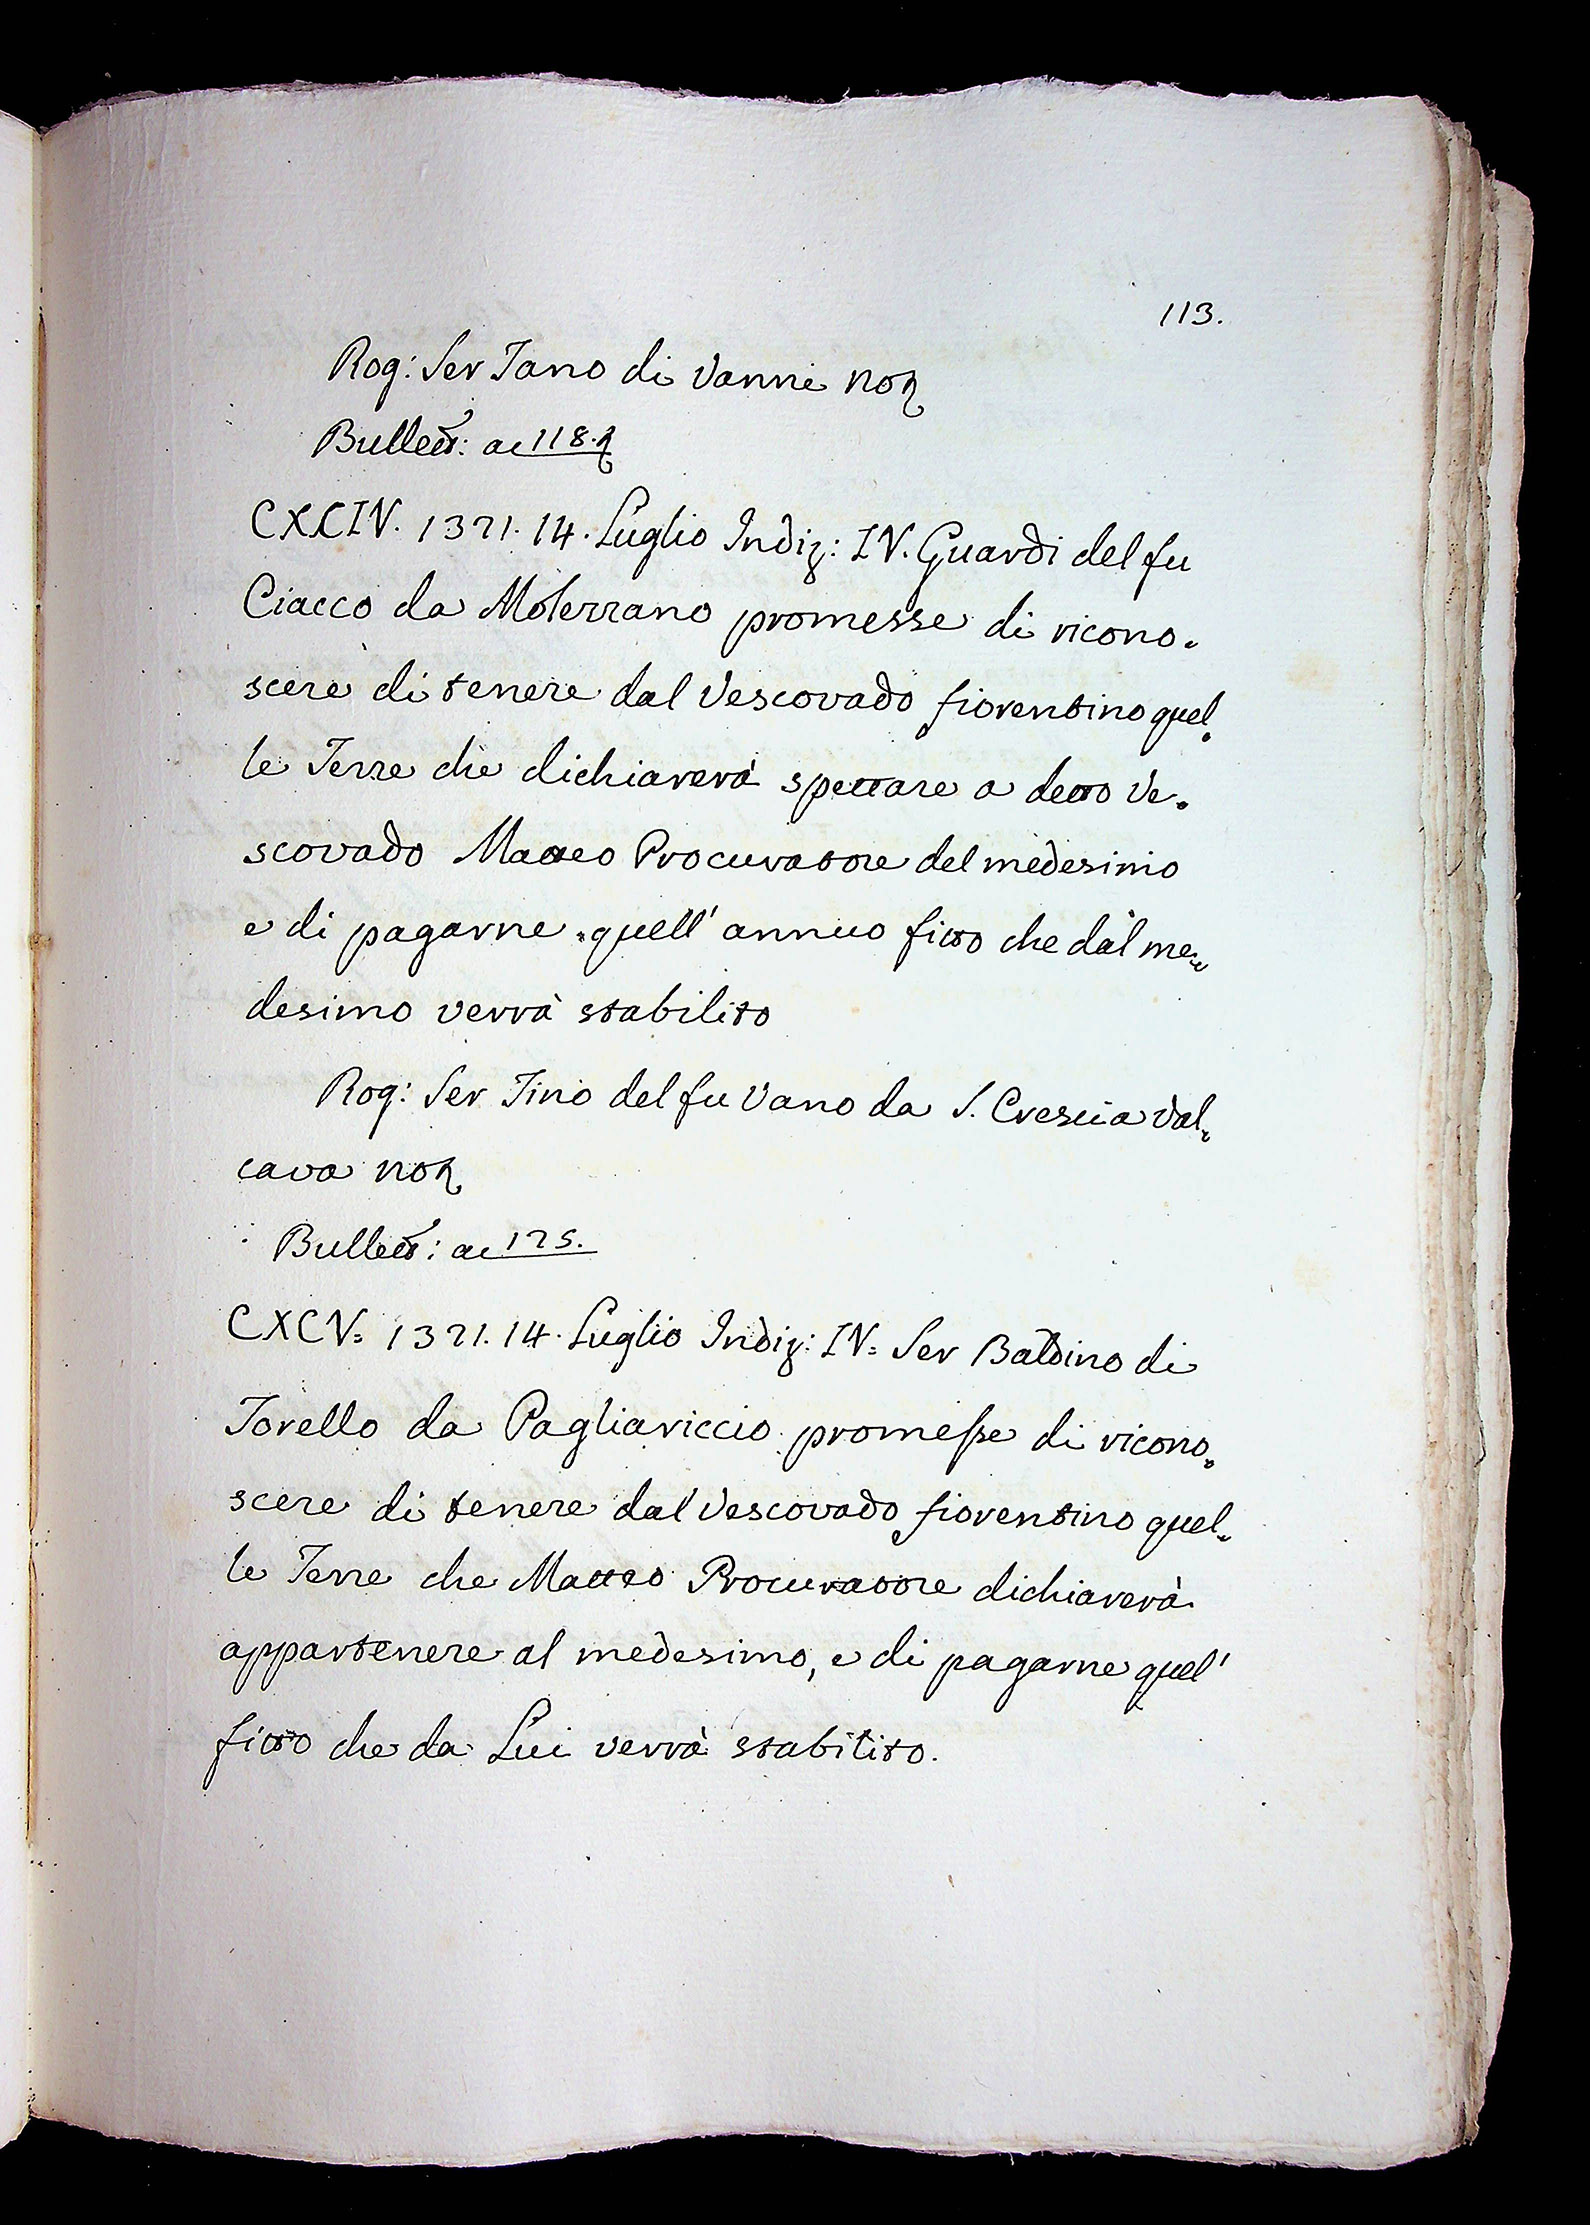 113.
Rog: Ser Tano di Vanni not
Bullett: ac 118.t
CXCIV. 1321. 14. Luglio Indiz: IV. Guardi del fu
Ciacco da Molezzano promesse di ricono-
scere di tenere dal Vescovado fiorentino quel-
le Terre che dichiarerà spettare a detto Ve-
scovado Matteo Procuratore del medesimo
e di pagarne quell' annuo fitto che dal me-
desimo verrà stabilito
Rog: Ser Tino del fu Vano da S. Crescia Val-
cava not
Bullett: ac 125.
CXCV. 1321. 14. Luglio Indiz: IV. Ser Baldino di
Torello da Pagliariccio promesse di ricono-
scere di tenere dal Vescovado fiorentino quel-
le Terre che Matteo Procuratore dichiarerà
appartenere al medesimo, e di pagarne quel'
fitto che da Lui verrà stabilito.